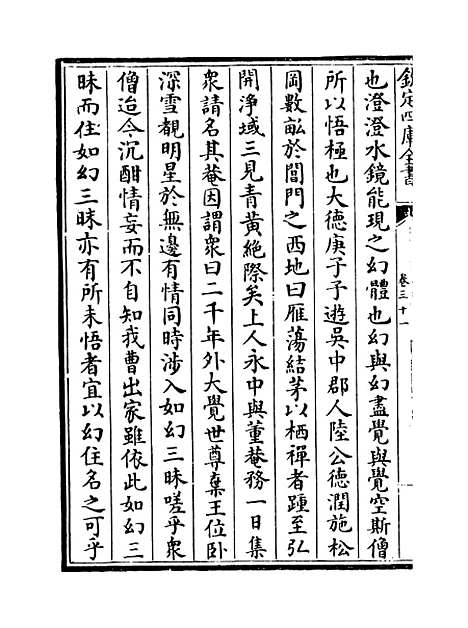 欽定四庫全書
卷三十一
也澄澄水鏡能現之幻體也幻與幻盡覺與覺空斯僧
所以悟極也大德庚子子遊吳中郡人陸公德潤施松
岡數畝於閶門之西地曰雁蕩結茅以栖禪者踵至弘
開淨域三見青黃絶際矣上人永中與董菴務一日集
衆請名其菴因謂衆曰二千年外大覺世尊棄王位卧
深雪覩明星於無邊有情同時涉入如幻三昧嗟乎衆
僧迨今沉酣情妄而不自知我曹出家雖依此如幻三
昧而住如幻三昧亦有所未悟者宜以幻住名之可乎